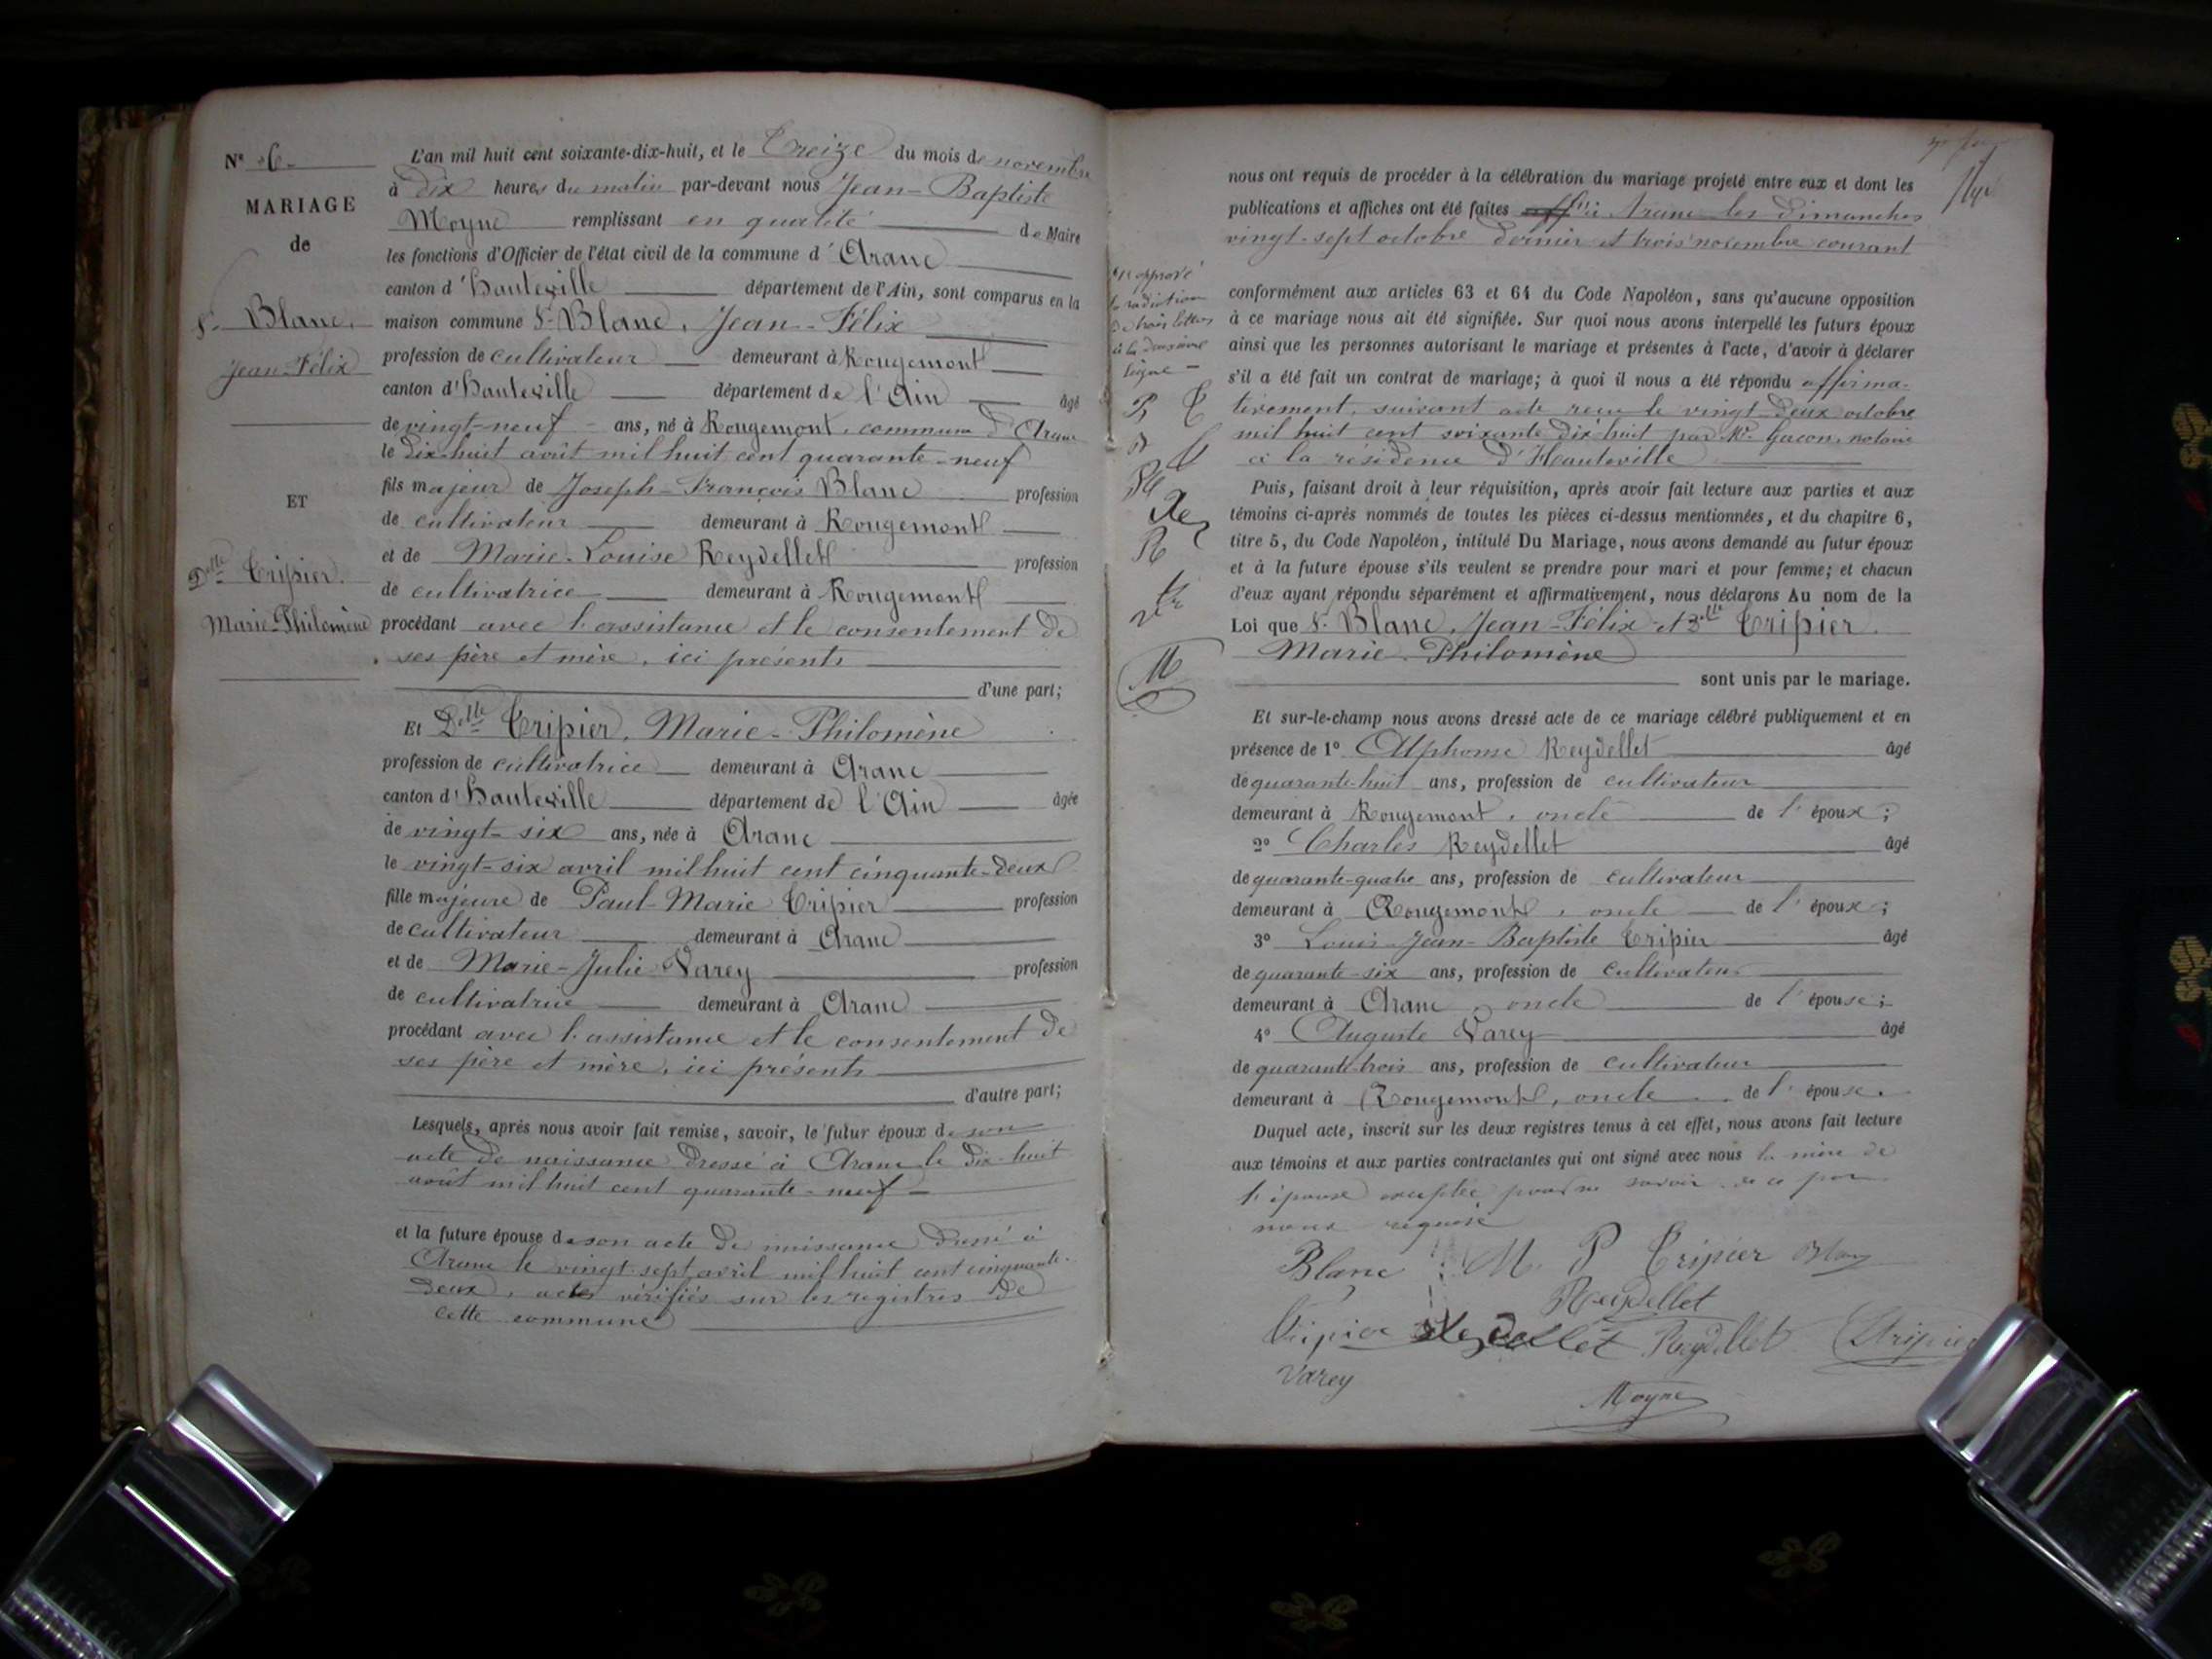 N° 6
MARIAGE
de
Sr Blanc,
Jean-Félix
ET
Delle Tripier
Marie-Philomène
L'an mil huit cent soixante-dix-huit, et le Treize du mois de novembre
à dix heures du matin par-devant nous Jean-Baptiste
Moyne remplissant en qualité de Maire
les fonctions d'Officier de l'état civil de la commune d'Aranc
canton d'Hauteville département de l'Ain, sont comparus en la
maison commune Sr Blanc, Jean-Félix
profession de cultivateur demeurant à Rougemont
canton d'Hauteville département de l'Ain âgé
de vingt-neuf ans, né à Rougemont, commune d'Aranc
le dix-huit août mil huit cent quarante-neuf
fils majeur de Joseph-François Blanc profession
de cultivateur demeurant à Rougemont
et de Marie-Louise Reydellet profession
de cultivatrice demeurant à Rougemont
procédant avec l'assistance et le consentement de
ses père et mère, ici présents
d'une part;
Et Delle Tripier, Marie-Philomène
profession de cultivatrice demeurant à Aranc
canton d'Hauteville département de l'Ain âgée
de vingt-six ans, née à Aranc
le vingt-six avril mil huit cent cinquante-deux
fille majeure de Paul-Marie Tripier profession
de cultivateur demeurant à Aranc
et de Marie-Julie Varey profession
de cultivatrice demeurant à Aranc
procédant avec l'assistance et le consentement de
ses père et mère, ici présents
d'autre part;
Lesquels, après nous avoir fait remise, savoir, le futur époux de son
acte de naissance dressé à Aranc le dix-huit
août mil huit cent quarante-neuf
et la future épouse de son acte de naissance dressé à
Aranc le vingt-sept avril mil huit cent cinquante-
deux, actes vérifiés sur les registres de
cette commune
nous ont requis de procéder à la célébration du mariage projeté entre eux et dont les
publications et affiches ont été faites à Aranc les dimanches
vingt-sept octobre dernier et trois novembre courant
approuvé
la radiation
de trois lettres
à la deuxième
ligne
conformément aux articles 63 et 64 du Code Napoléon, sans qu'aucune opposition
à ce mariage nous ait été signifiée. Sur quoi nous avons interpellé les futurs époux
ainsi que les personnes autorisant le mariage et présentes à l'acte, d'avoir à déclarer
s'il a été fait un contrat de mariage; à quoi il nous a été répondu affirma-
tivement, suivant acte reçu le vingt-deux octobre
mil huit cent soixante-dix-huit par Me Gacon, notaire
à la résidence d'Hauteville
Puis, faisant droit à leur réquisition, après avoir fait lecture aux parties et aux
témoins ci-après nommés de toutes les pièces ci-dessus mentionnées, et du chapitre 6,
titre 5, du Code Napoléon, intitulé Du Mariage, nous avons demandé au futur époux
et à la future épouse s'ils veulent se prendre pour mari et pour femme; et chacun
d'eux ayant répondu séparément et affirmativement, nous déclarons Au nom de la
Loi que Sr Blanc, Jean-Félix et Delle Tripier
Marie-Philomène
sont unis par le mariage.
Et sur-le-champ nous avons dressé acte de ce mariage célébré publiquement et en
présence de 1° Alphonse Reydellet âgé
de quarante-huit ans, profession de cultivateur
demeurant à Rougemont, oncle de l'époux;
2° Charles Reydellet âgé
de quarante-quatre ans, profession de cultivateur
demeurant à Rougemont, oncle de l'époux;
3° Louis-Jean-Baptiste Tripier âgé
de quarante-six ans, profession de cultivateur
demeurant à Aranc, oncle de l'épouse;
4° Auguste Varey âgé
de quarante-trois ans, profession de cultivateur
demeurant à Rougemont, oncle de l'épouse.
Duquel acte, inscrit sur les deux registres tenus à cet effet, nous avons fait lecture
aux témoins et aux parties contractantes qui ont signé avec nous la mère de
l'épouse exceptée pour ne savoir, de ce par
nous requise
Blanc M. P Tripier Blanc
Reydellet
Tripier Reydellet Reydellet Tripier
Varey
Moyne